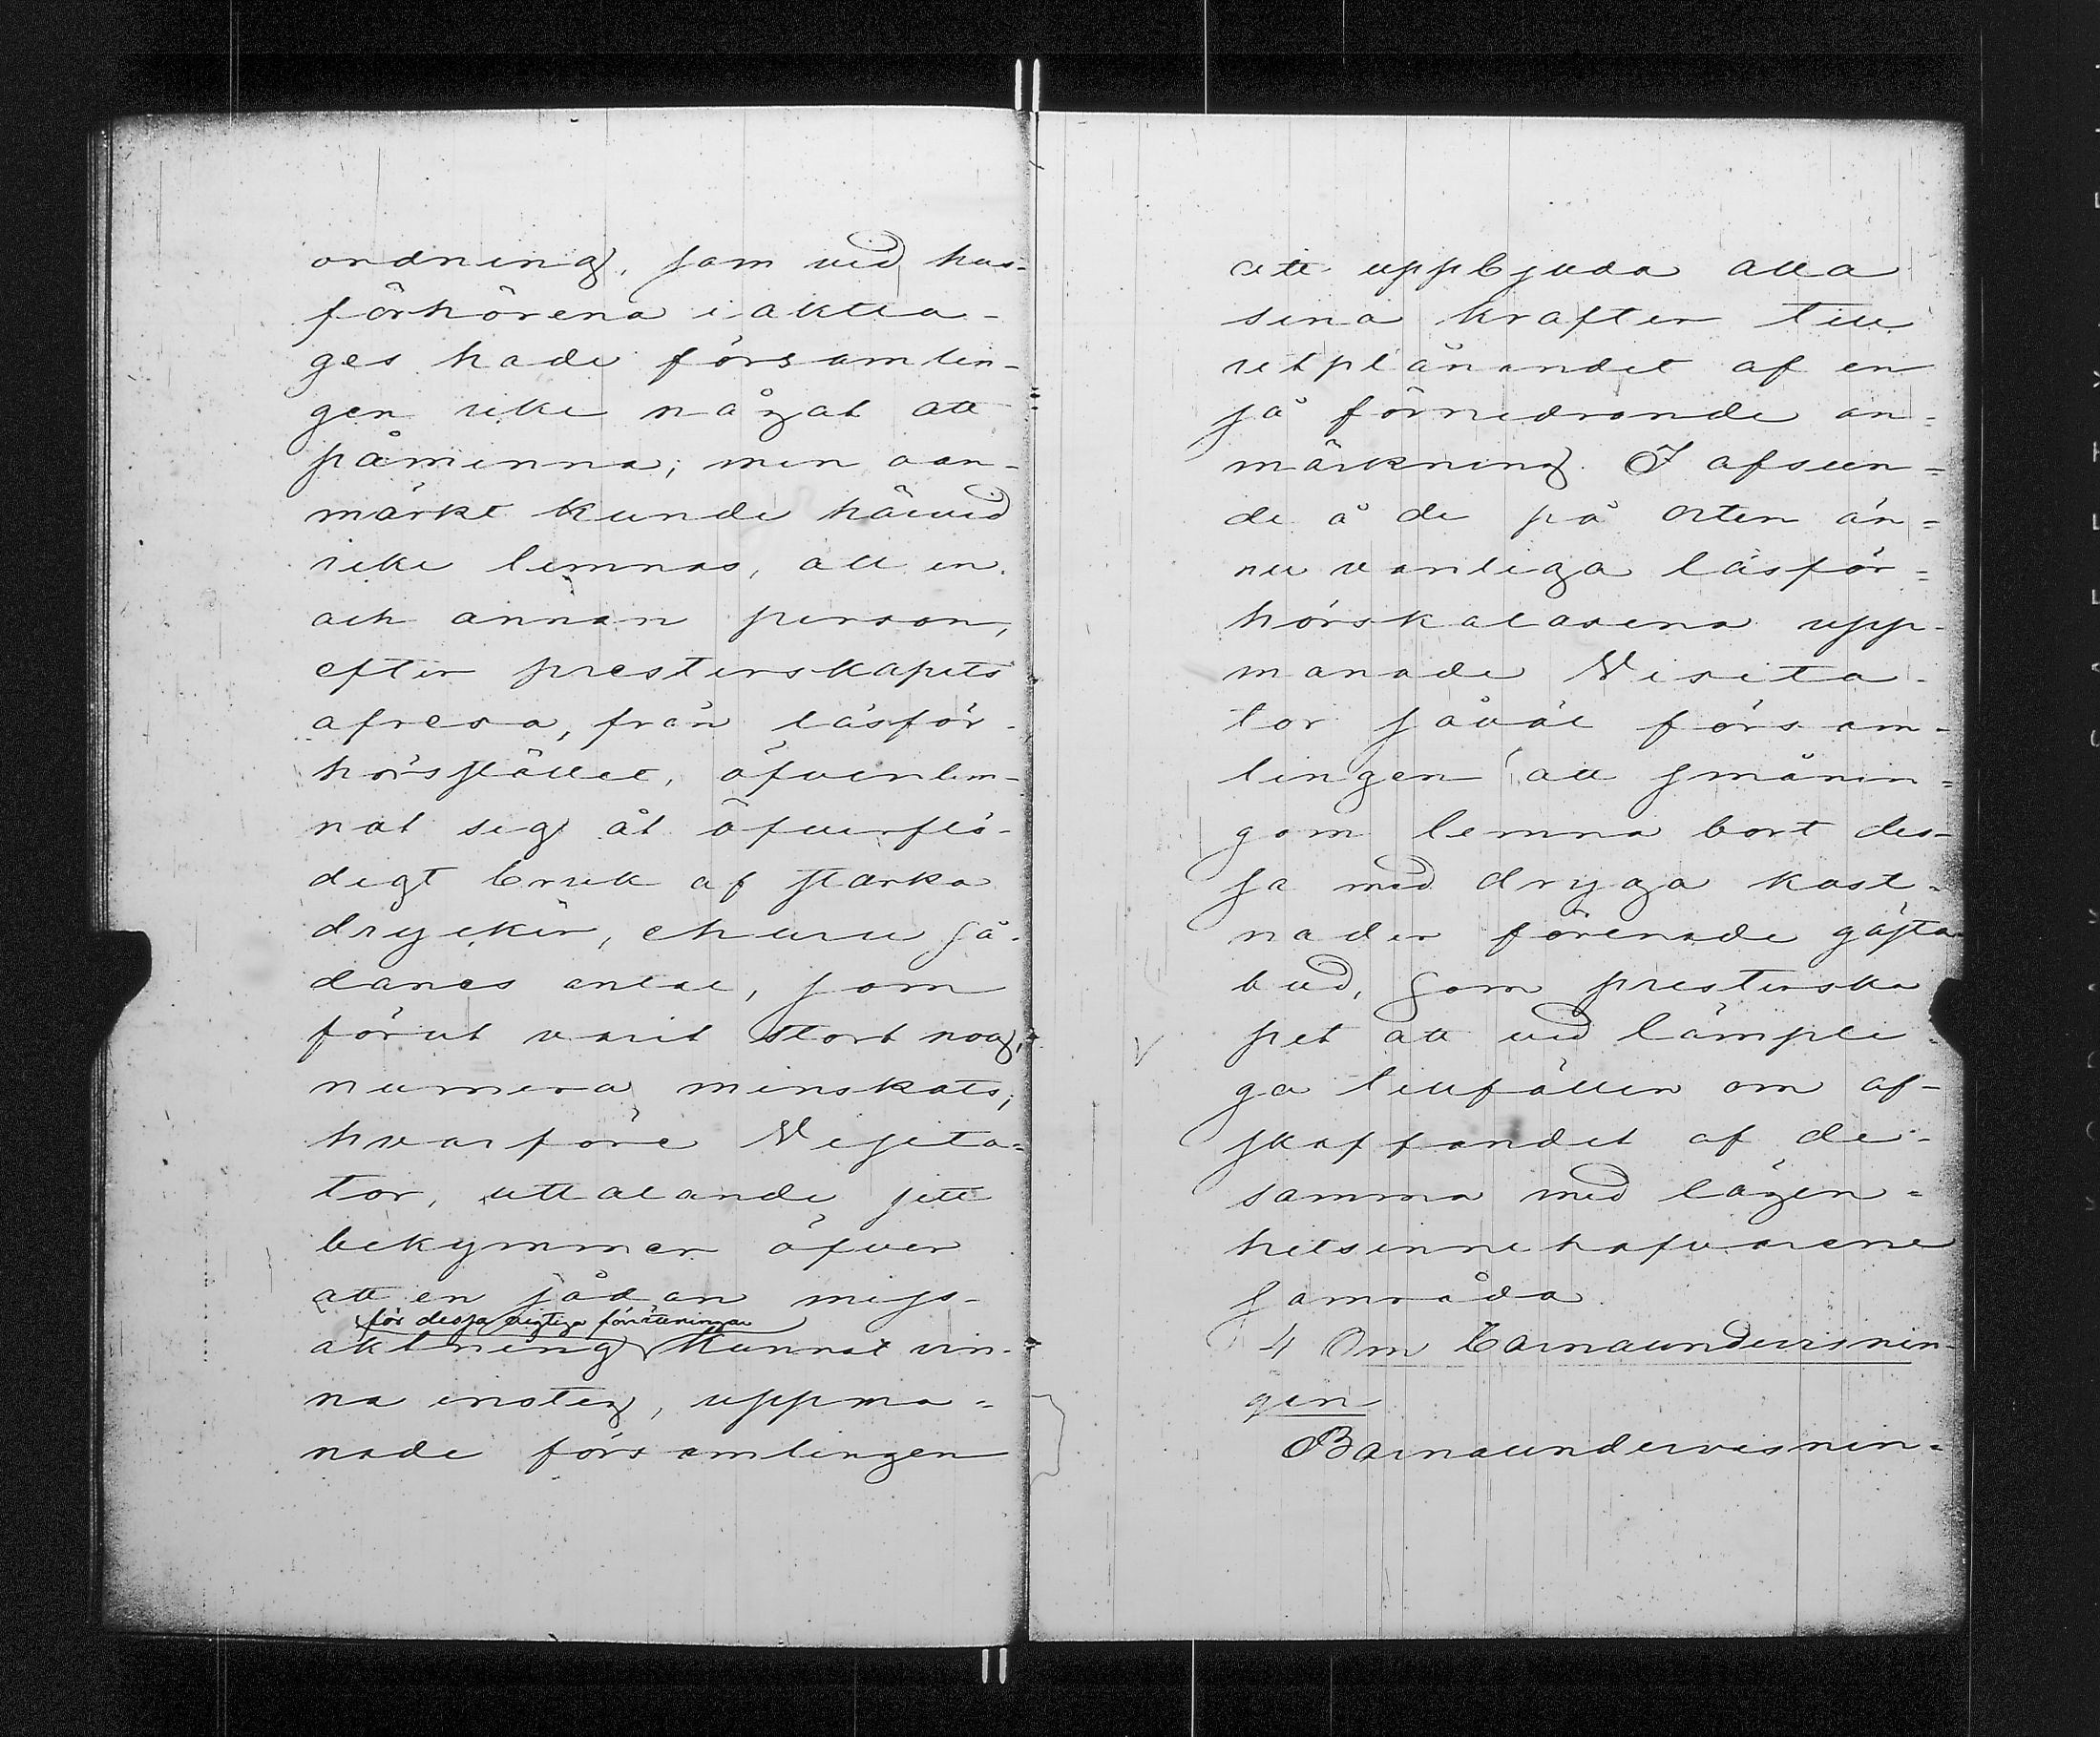 ordning, som vid hus-
förhören iaktta-
ges hade församlin-
gen icke något att
påminna; men oan-
märkt kunde härvid
icke lemnas, att en
och annan person,
efter presterskapets
afresa, från läsför-
hörsstället, öfverlem-
nat sig åt öfverflö-
digt bruk af starka
drycker, ehuru så-
danes antal, som
förut varit stort nog,
numera minskats;
hvarföre Visita-
tor, uttalande sitt
bekymmer öfver
att en sådan miss-
för dessa vigtiga förrättningar
aktning kunnat vin-
na insteg, uppma-
nade församlingen
att uppbjuda alla
sina krafter till
utplånandet af en
så förnedrande an-
märkning. I afseen-
de å de på orten än-
nu vanliga läsför-
hörskalasena upp-
manade Visita-
tor såväl försam-
lingen att smånin-
gom lemna bort des-
sa med dryga kost-
nader förenade gästa-
bud, som presterska
pet att vid lämpli-
ga tillfällen om af-
skaffandet af de-
samma med lägen-
hetsinnehafvarene
samråda.
4 Om Barnaundervisnin-
gen
Barnaundervisnin-